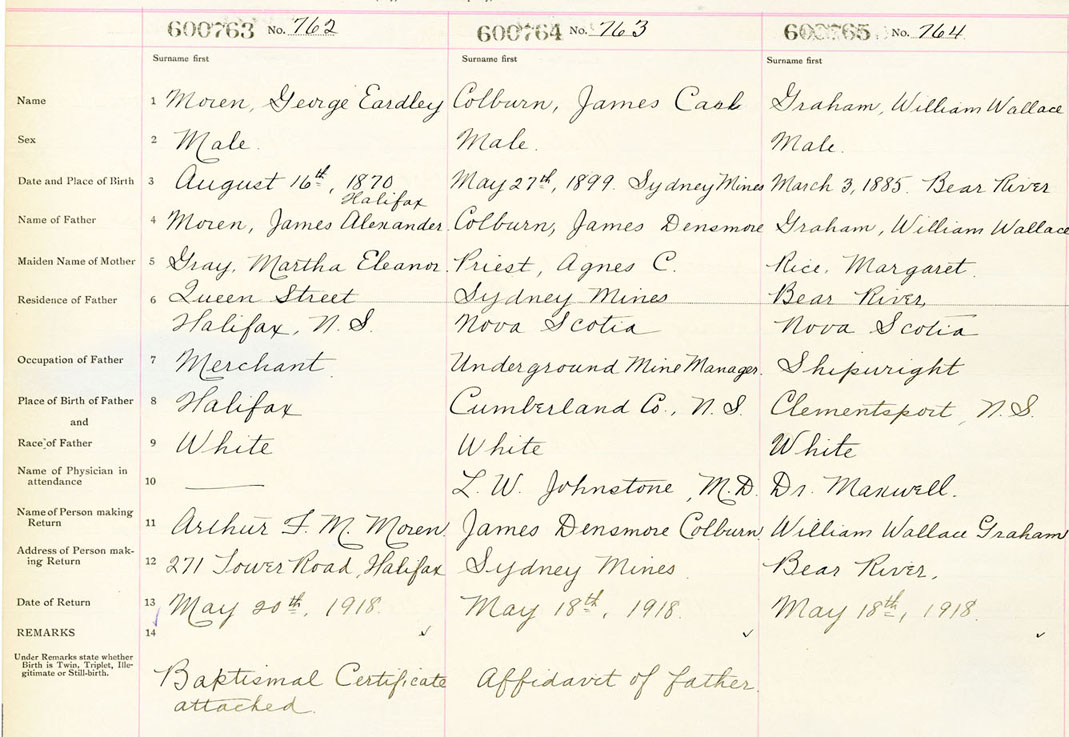 600763 No. 762 600764 No. 763 600765 No. 764
Surname first Surname first Surname first
Name 1 Moren, George Eardley Colburn, James Carl Graham, William Wallace
Sex 2 Male. Male. Male.
Date and Place of Birth 3 August 16th, 1870 May 27th, 1899. Sydney Mines March 3, 1885. Bear River
Halifax
Name of Father 4 Moren, James Alexander. Colburn, James Densmore Graham, William Wallace
Maiden Name of Mother 5 Gray, Martha Eleanor. Priest, Agnes C. Rice, Margaret.
Residence of Father 6 Queen Street Sydney Mines Bear River,
Halifax, N.S. Nova Scotia Nova Scotia
Occupation of Father 7 Merchant. Underground Mine Manager. Shipwright
Place of Birth of Father 8 Halifax Cumberland Co., N.S. Clementsport, N.S.
and
Race of Father 9 White White White
Name of Physician in
attendance 10 —— L. W. Johnstone, M.D. Dr. Maxwell.
Name of Person making
Return 11 Arthur F. M. Moren. James Densmore Colburn, William Wallace Graham
Address of Person mak-
ing Return 12 271 Tower Road, Halifax Sydney Mines. Bear River.
Date of Return 13 May 20th, 1918. May 18th, 1918. May 18th, 1918.
REMARKS 14
Under Remarks state whether
Birth is Twin, Triplet, Ille-
gitimate or Still-birth.
Baptismal Certificate Affidavit of father.
attached.